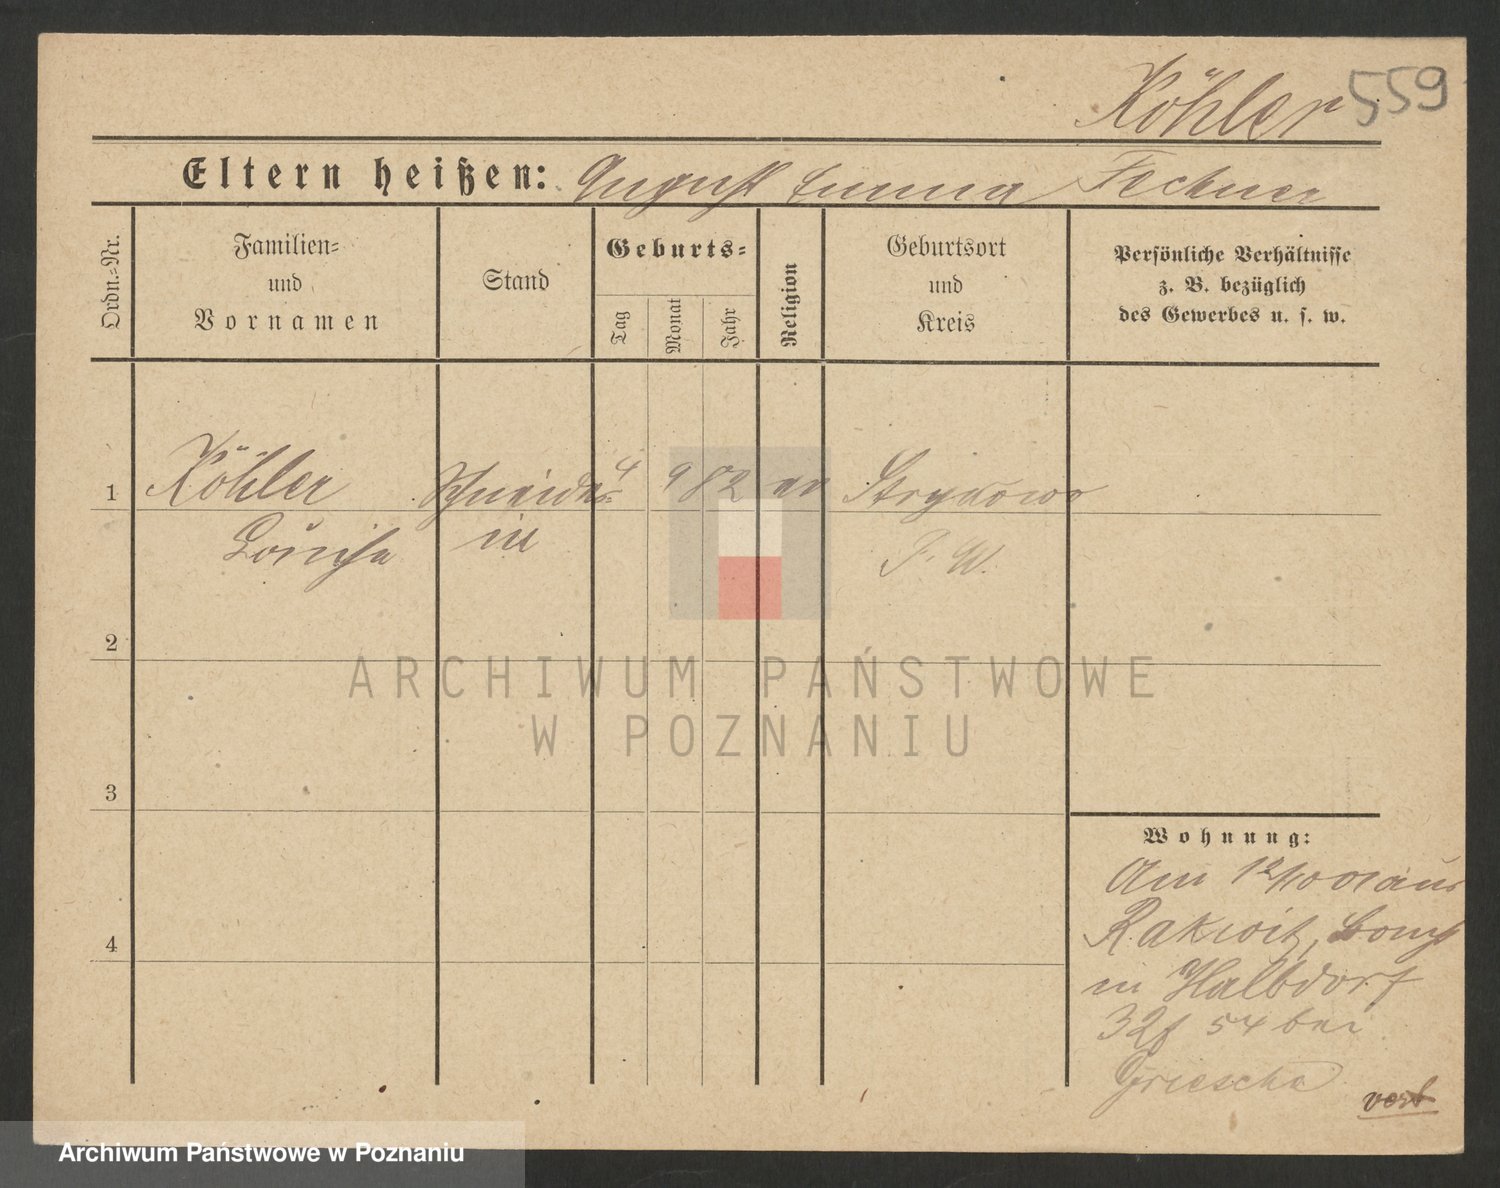 Köhler 559
Eltern heißen: August Emma Fechner
Ordn.=Nr.
Familien=
und
Vornamen
Stand
Geburts=
Tag
Monat
Jahr
Religion
Geburtsort
und
Kreis
Persönliche Verhältnisse
z. B. bezüglich
des Gewerbes u. s. w.
1 Köhler Schneide= 4 9 82 ev Strykowo
Louise in P. W.
2
ARCHIWUM PAŃSTWOWE
W POZNANIU
3
Wohnung:
Am 12/10 01 aus
Rakwitz, Bomst
4
in Halbdorf
32 54 bei
Griesche
verb
Archiwum Państwowe w Poznaniu